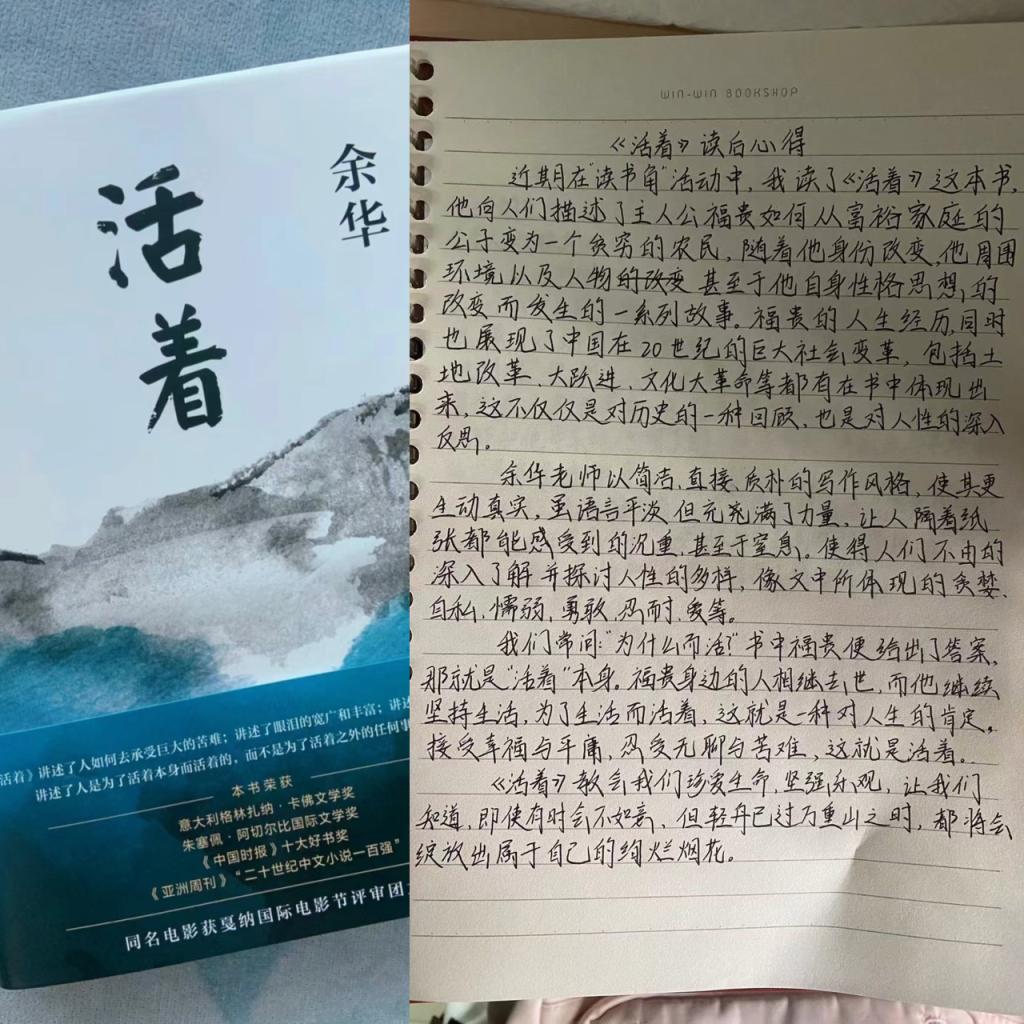 活着
余华
活着》讲述了人如何去承受巨大的苦难；讲述了眼泪的宽广和丰富；讲述
讲述了人是为了活着本身而活着的，而不是为了活着之外的任何事
本书荣获
意大利格林扎纳·卡佛文学奖
朱塞佩·阿切尔比国际文学奖
《中国时报》十大好书奖
《亚洲周刊》“二十世纪中文小说一百强”
同名电影获戛纳国际电影节评审团
WIN-WIN BOOKSHOP
《活着》读后心得
近期在“读书角”活动中，我读了《活着》这本书，
他向人们描述了主人公福贵如何从富裕家庭的
公子变为一个贫穷的农民，随着他身份改变，他周围
环境以及人物的改变甚至于他自身性格思想的
改变而发生的一系列故事。福贵的人生经历，同时
也展现了中国在20世纪的巨大社会变革，包括土
地改革、大跃进、文化大革命等都有在书中体现出
来，这不仅仅是对历史的一种回顾，也是对人性的深入
反思。
余华老师以简洁、直接、质朴的写作风格，使其更
生动真实，虽语言平淡但充充满了力量，让人隔着纸
张都能感受到的沉重，甚至于窒息。使得人们不由的
深入了解并探讨人性的多样，像文中所体现的贪婪、
自私、懦弱、勇敢、忍耐、爱等。
我们常问：“为什么而活？”书中福贵便给出了答案，
那就是“活着”本身。福贵身边的人相继去世，而他继续
坚持生活，为了生活而活着，这就是一种对人生的肯定。
接受幸福与平庸，忍受无聊与苦难，这就是活着。
《活着》教会我们珍爱生命，坚强乐观，让我们
知道，即使有时会不如意，但轻舟已过万重山之时，都将会
绽放出属于自己的绚烂烟花。